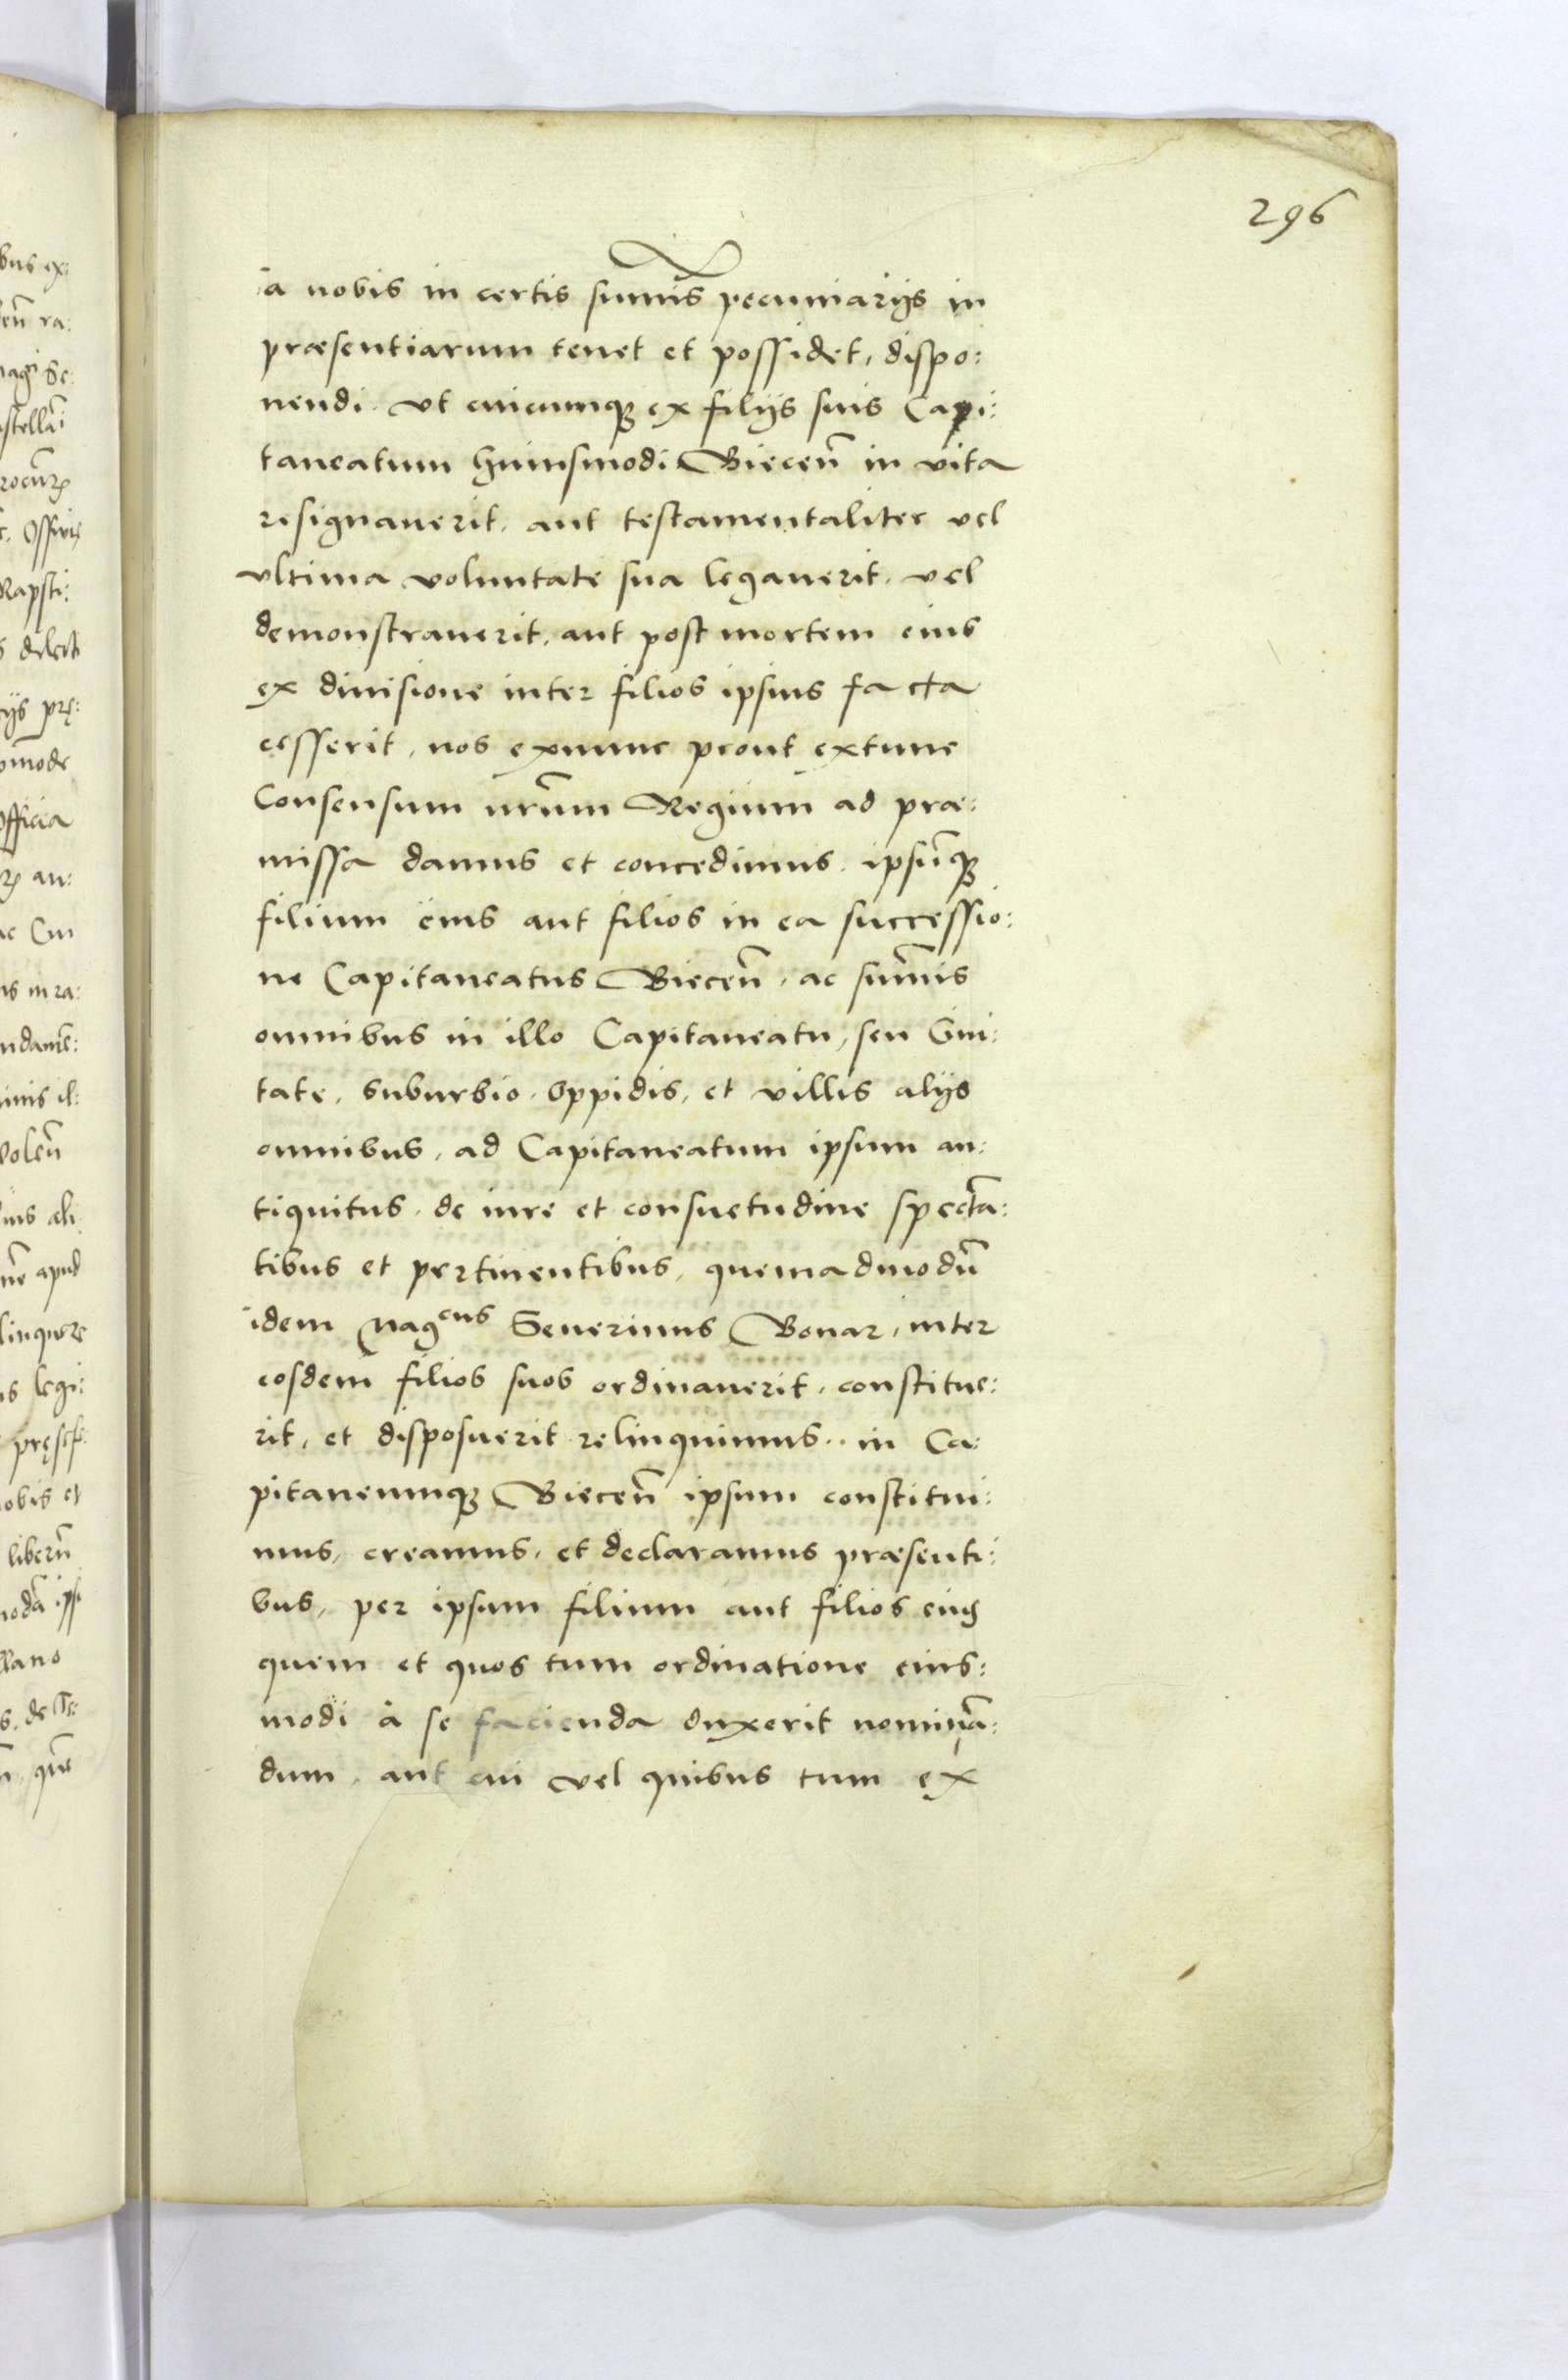 296
a nobis in certis sum̄is pecuniarijs in
præsentiarum tenet et possidet, dispo:
nendi. Vt cuicumq; ex filijs suis Capi:
taneatum huiusmodi Biecen̄ in vita
resignauerit, aut testamentaliter vel
vltima voluntate sua legauerit, vel
demonstrauerit, aut post mortem eius
ex diuisione inter filios ipsius facta
cesserit, nos exnunc prout extunc
Consensum nr̄um Regium ad præ:
missa damus et concedimus. ipsum̄q;
filium eius aut filios in ea successio:
ne Capitaneatus Biecen̄, ac sum̄is
omnibus in illo Capitaneatu, seu Ciui:
tate, Suburbio, Oppidis, et villis alijs
omnibus, ad Capitaneatum ipsum an:
tiquitus, de iure et consuetudine specta:
tibus et pertinentibus, quemadmodū
idem Mag^cus Seuerinus Bonar, inter
eosdem filios suos ordinauerit, constitue:
rit, et disposuerit relinquimus. in Ca:
pitaneumq; Biecen̄ ipsum constitui:
mus, creamus, et declaramus præsenti:
bus, per ipsum filium aut filios eius
quem et quos tum ordinatione eius:
modi à se facienda duxerit nominā:
dum, aut cui vel quibus tum ex
bus ex:
en̄ ra:
stellā
Rapsti:
ijs prę:
officia
an:
ac Ciui
us in ra:
volen̄
apud
linquere
legi:
nobis et
liberū
llano